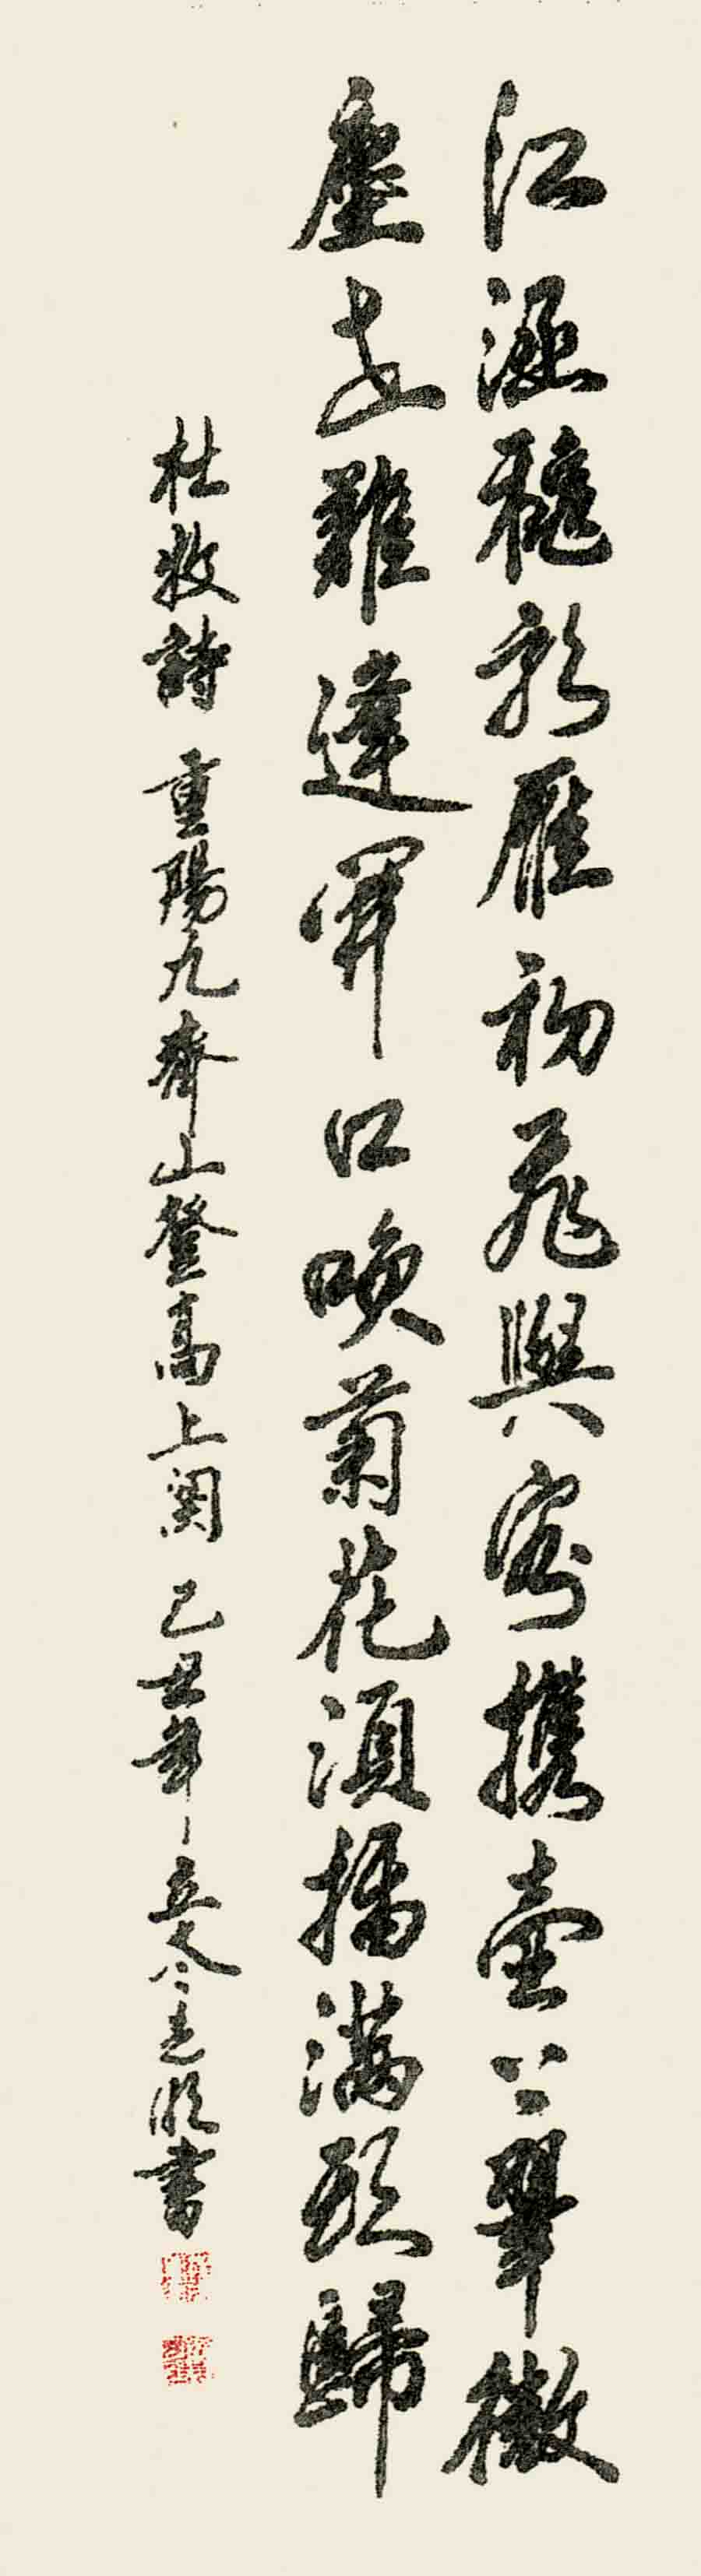 江涵穐影雁初飛與客携壺上翠微
塵世難逢開口咲菊花須插滿頭歸
杜牧詩 重陽九齊山登高上闋 己丑年 書